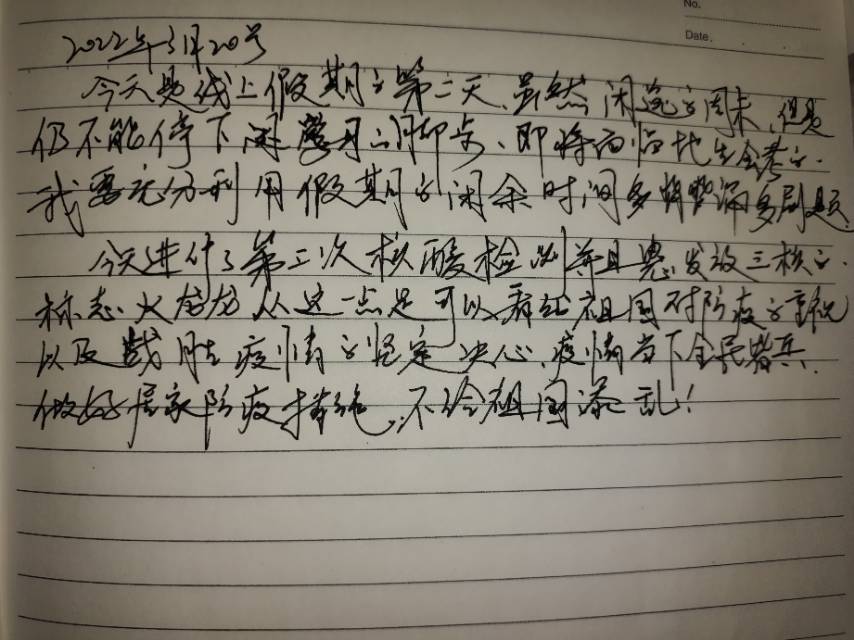 No.
Date.
2022年3月20号
今天是线上假期的第二天,虽然闲逸的周末,但是
仍不能停下闲学习的脚步、即将面临地生会考的.
我需充分利用假期的闲余时间多将整漏多刷题
今天进行了第三次核酸检测并且患发放三核的.
标志火龙龙从这一点足可以看红祖国对防疫的重视
以及战胜疫情的坚定决心,疫情当下全民皆兵.
做好居家防疫措施,不给祖国添乱!